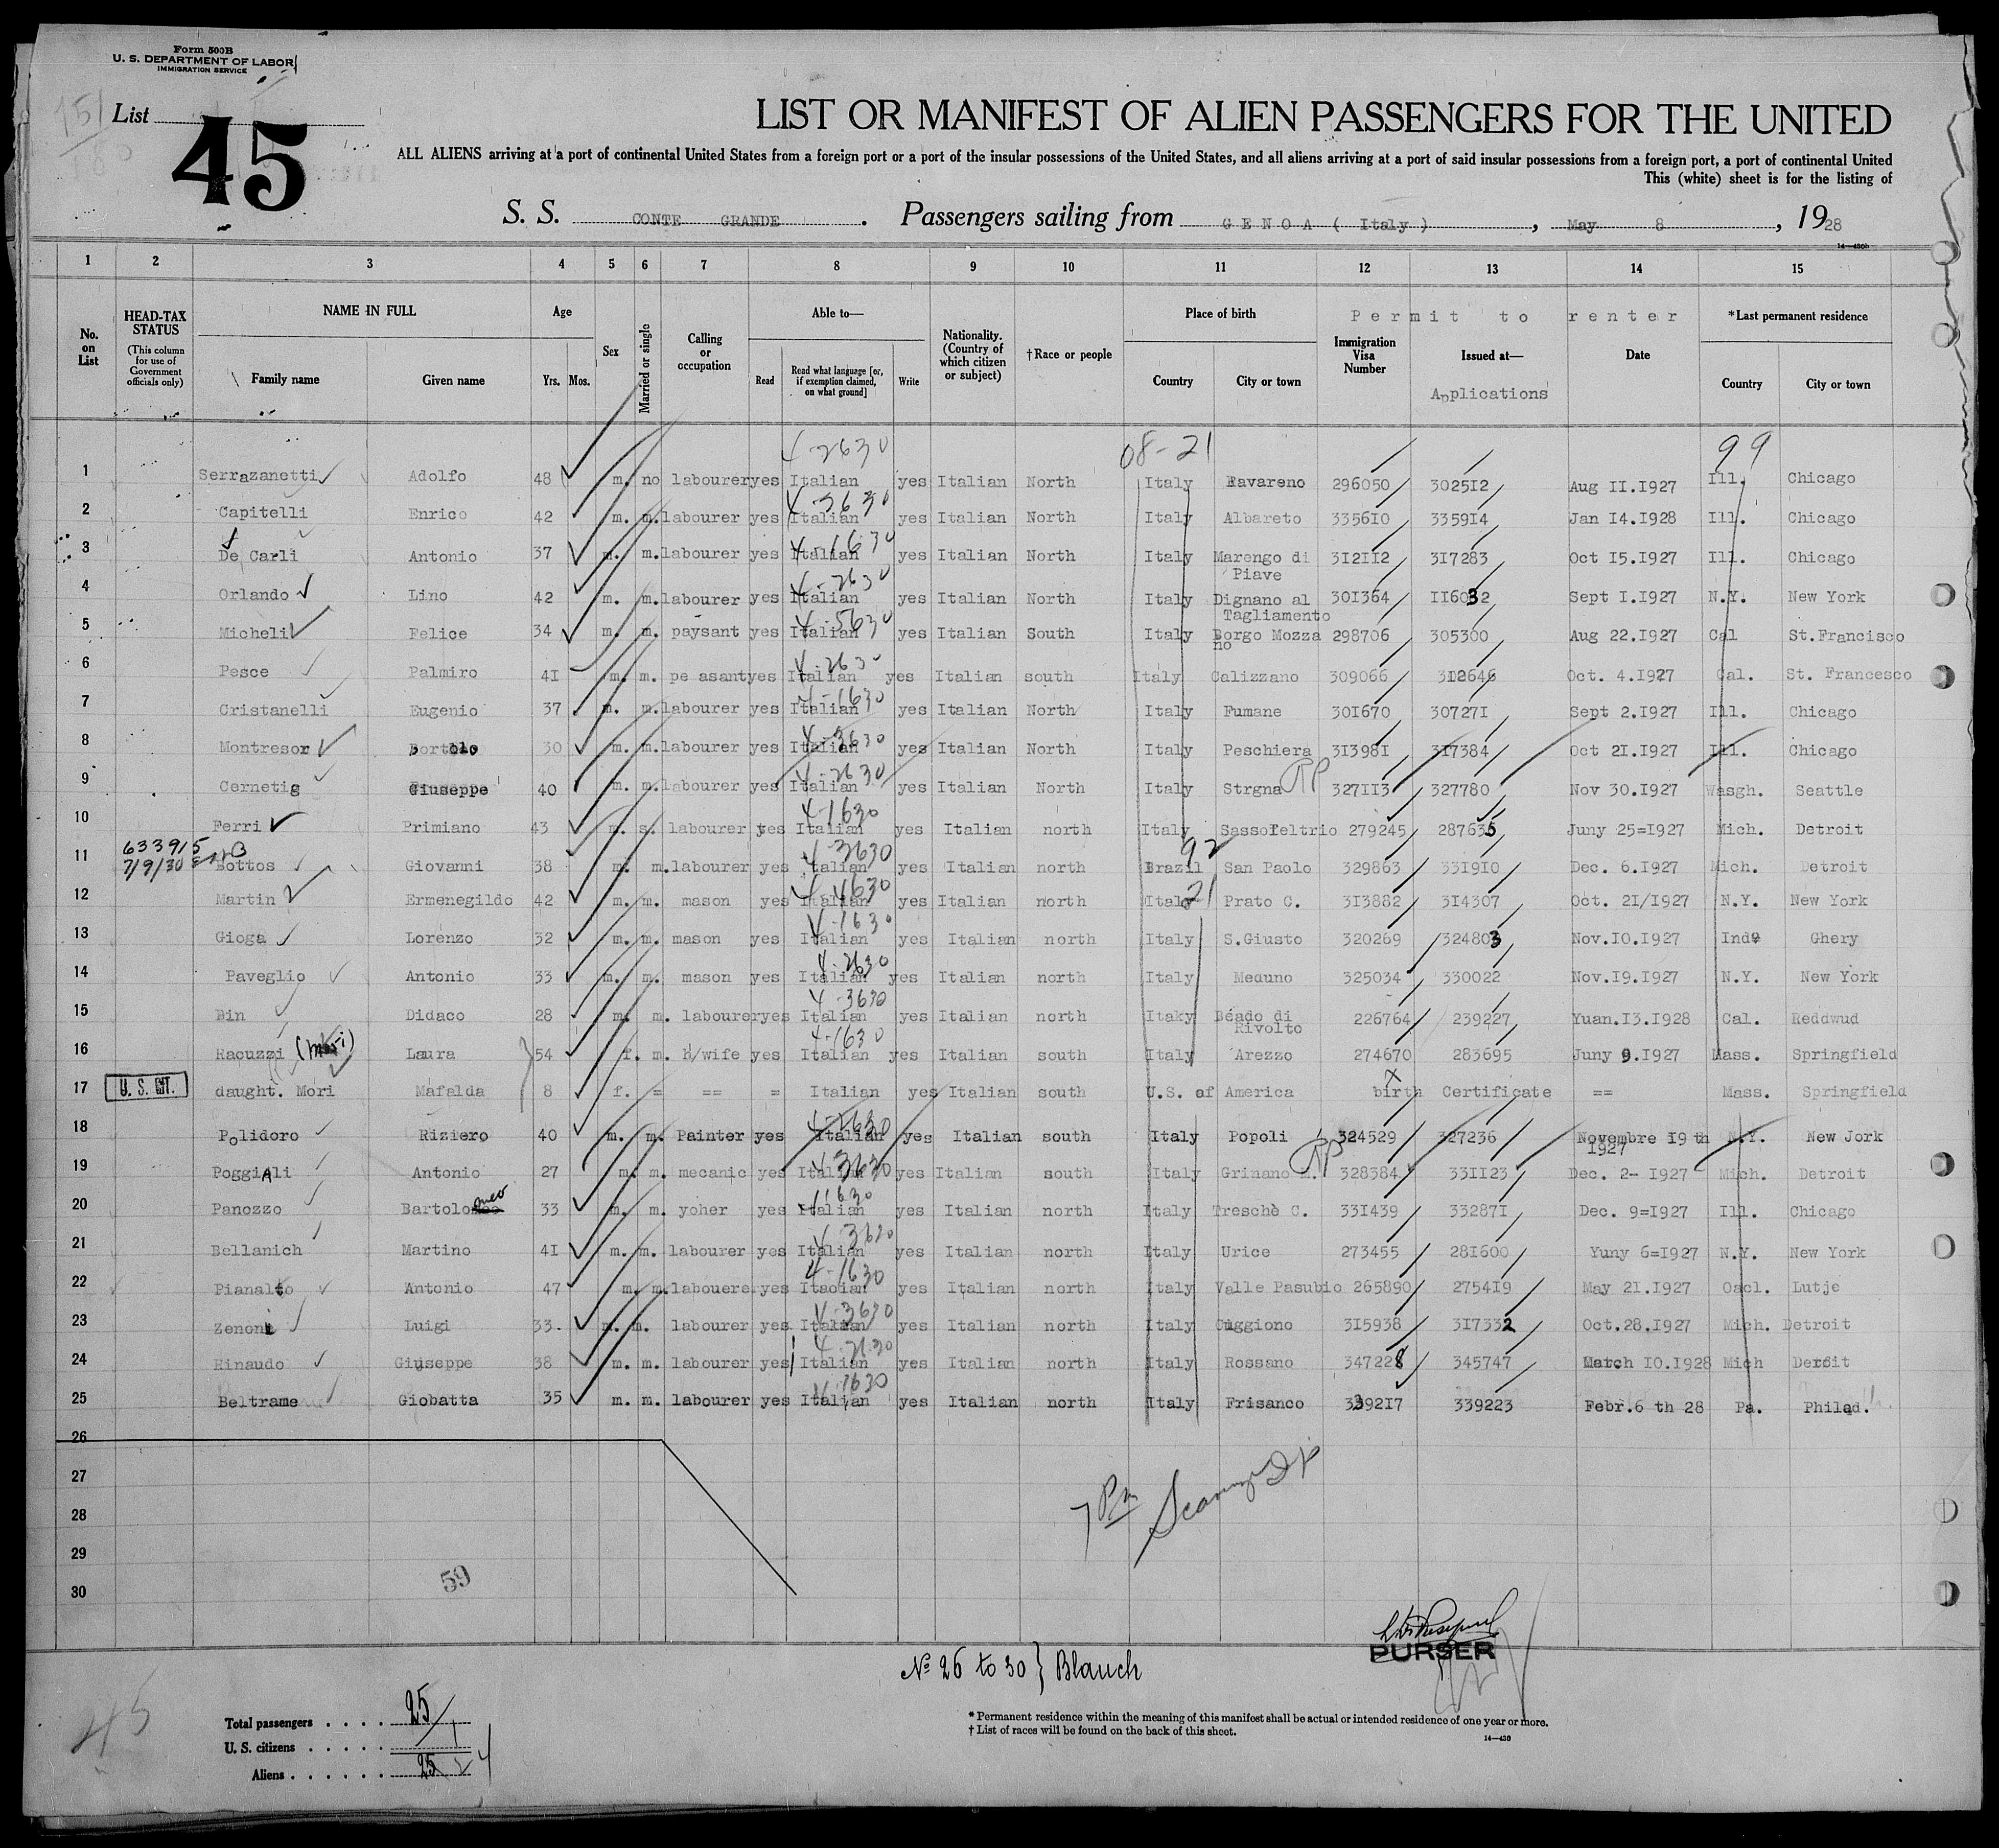 Form 500B
U. S. DEPARTMENT OF LABOR
IMMIGRATION SERVICE
151
180
List
45
LIST OR MANIFEST OF ALIEN PASSENGERS FOR THE UNITED
ALL ALIENS arriving at a port of continental United States from a foreign port or a port of the insular possessions of the United States, and all aliens arriving at a port of said insular possessions from a foreign port, a port of continental United
This (white) sheet is for the listing of
S. S. CONTE GRANDE. Passengers sailing from GENOA ( Italy ), May 8, 1928
14—430b
1 2 3 4 5 6 7 8 9 10 11 12 13 14 15
No. on List
HEAD-TAX STATUS (This column for use of Government officials only)
NAME IN FULL
Family name Given name
Age
Yrs. Mos.
Sex
Married or single
Calling or occupation
Able to—
Read Read what language [or, if exemption claimed, on what ground] Write
Nationality. (Country of which citizen or subject)
†Race or people
Place of birth
Country City or town
Permit to renter
Immigration Visa Number
Issued at—
Applications
Date
*Last permanent residence
Country City or town
4-2630 08-21 99
1 Serrazanetti Adolfo 48 m. no labourer yes Italian yes Italian North Italy Ravareno 296050 302512 Aug II.1927 Ill. Chicago
4-3630
2 Capitelli Enrico 42 m. m. labourer yes Italian yes Italian North Italy Albareto 335610 335914 Jan 14.1928 Ill. Chicago
4-1630
3 De Carli Antonio 37 m. m. labourer yes Italian yes Italian North Italy Marengo di Piave 312112 317283 Oct 15.1927 Ill. Chicago
4-2630
4 Orlando Lino 42 m. m. labourer yes Italian yes Italian North Italy Dignano al Tagliamento 301364 116032 Sept I.1927 N.Y. New York
4-5630
5 Micheli Felice 34 m. m. paysant yes Italian yes Italian South Italy Borgo Mozza no 298706 305300 Aug 22.1927 Cal St.Francisco
4-2630
6 Pesce Palmiro 41 m. m. pe asant yes Italian yes Italian south Italy Calizzano 309066 312646 Oct. 4.1927 Cal. St. Francesco
4-1630
7 Cristanelli Eugenio 37 m. m. labourer yes Italian yes Italian North Italy Fumane 301670 307271 Sept 2.1927 Ill. Chicago
4-3630
8 Montresor Bortolo 30 m. m. labourer yes Italian yes Italian North Italy Peschiera 313981 317384 Oct 21.1927 Ill. Chicago
4-2630
9 Cernetig Giuseppe 40 m. m. labourer yes Italian yes Italian North Italy Strgna 327113 327780 Nov 30.1927 Wasgh. Seattle
4-1630
10 Ferri Primiano 43 m. s. labourer yes Italian yes Italian north Italy Sassofeltrio 279245 287635 Juny 25=1927 Mich. Detroit
633915 4-3630 92
11 7/9/30 Bottos Giovanni 38 m. m. labourer yes Italian yes Italian north Brazil San Paolo 329863 331910 Dec. 6.1927 Mich. Detroit
4-4630 21
12 Martin Ermenegildo 42 m. m. mason yes Italian yes Italian north Italy Prato C. 313882 314307 Oct. 21/1927 N.Y. New York
4-1630
13 Gioga Lorenzo 32 m. m. mason yes Italian yes Italian north Italy S.Giusto 320269 324803 Nov.10.1927 Ind. Ghery
4-2630
14 Paveglio Antonio 33 m. m. mason yes Italian yes Italian north Italy Meduno 325034 330022 Nov.19.1927 N.Y. New York
4-3630
15 Bin Didaco 28 m. m. labourer yes Italian yes Italian north Itaky Béado di Rivolto 226764 239227 Yuan.13.1928 Cal. Reddwud
4-1630
16 Racuzzi (Mori) Laura 54 f. m. h/wife yes Italian yes Italian south Italy Arezzo 274670 283695 Juny 9.1927 Mass. Springfield
17 U. S. CIT. daught. Mori Mafalda 8 f. = == = Italian yes Italian south U.S. of America birth Certificate == Mass. Springfield
4-2630
18 Polidoro Riziero 40 m. m. Painter yes Italian yes Italian south Italy Popoli 324529 327236 Novembre 19 th 1927 N.Y. New Jork
4-3630
19 PoggiAli Antonio 27 m. m. mecanic yes Italian yes Italian south Italy Grinano M. 328384 331123 Dec. 2- 1927 Mich. Detroit
4-1630
20 Panozzo Bartolomeo 33 m. m. yoher yes Italian yes Italian north Italy Treschè C. 331439 332871 Dec. 9=1927 Ill. Chicago
4-3630
21 Bellanich Martino 41 m. m. labourer yes Italian yes Italian north Italy Urice 273455 281600 Yuny 6=1927 N.Y. New York
4-1630
22 Pianalto Antonio 47 m. m. labouere yes Itaolian yes Italian north Italy Valle Pasubio 265890 275419 May 21.1927 Oacl. Lutje
4-3630
23 Zenoni Luigi 33 m. m. labourer yes Italian yes Italian north Italy Cuggiono 315938 317332 Oct.28.1927 Mich. Detroit
4-2630
24 Rinaudo Giuseppe 38 m. m. labourer yes Italian yes Italian north Italy Rossano 347228 345747 March 10.1928 Mich Deroit
4-1630
25 Beltrame Giobatta 35 m. m. labourer yes Italian yes Italian north Italy Frisanco 339217 339223 Febr.6 th 28 Pa. Philad.
26
27
28
29
30
59
7 Pm
PURSER
No 26 to 30 } Blanch
45
Total passengers . . . . 25
U. S. citizens . . . . . 1
Aliens . . . . . . 25 24
* Permanent residence within the meaning of this manifest shall be actual or intended residence of one year or more.
† List of races will be found on the back of this sheet.
14—430